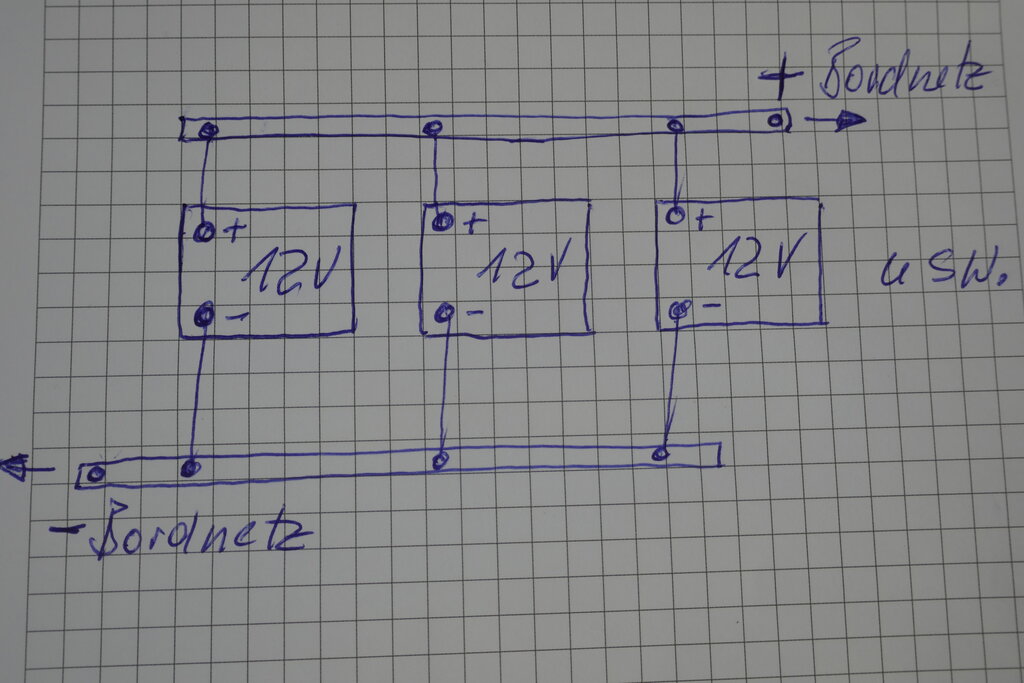 + Bordnetz
+ + +
12V 12V 12V usw.
- - -
- Bordnetz